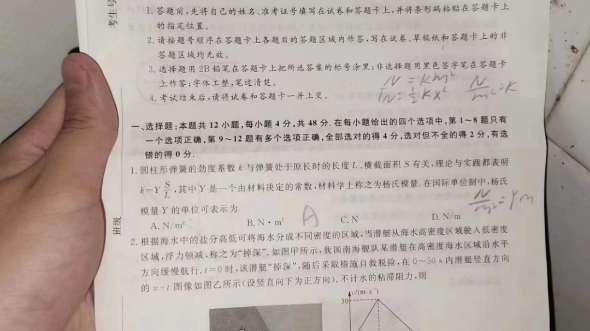 考生号
1. 答题前,先将自己的姓名、准考证号填写在试卷和答题卡上,并将条形码粘贴在答题卡上
的指定位置。
2. 请按题号顺序在答题卡上各题目的答题区域内作答,写在试卷、草稿纸和答题卡上的非
答题区域均无效。
3. 选择题用 2B 铅笔在答题卡上把所选答案的标号涂黑;非选择题用黑色签字笔在答题卡
上作答;字体工整,笔迹清楚。
4. 考试结束后,请将试卷和答题卡一并上交。
一、选择题:本题共 12 小题,每小题 4 分,共 48 分。在每小题给出的四个选项中,第 1~8 题只有
一个选项正确,第 9~12 题有多个选项正确,全部选对的得 4 分,选对但不全的得 2 分,有选
错的得 0 分。
1. 圆柱形弹簧的劲度系数 k 与弹簧处于原长时的长度 L、横截面积 S 有关,理论与实践都表明
k=Y S/L,其中 Y 是一个由材料决定的常数,材料学上称之为杨氏模量。在国际单位制中,杨氏
模量 Y 的单位可表示为
班级
A. N/m² B. N·m² A C. N D. N/m
2. 根据海水中的盐分高低可将海水分成不同密度的区域,当潜艇从海水高密度区域驶入低密度
区域,浮力顿减,称之为“掉深”。如图甲所示,我国南海舰队某潜艇在高密度海水区域沿水平
方向缓慢航行。t=0 时,该潜艇“掉深”,随后采取措施自救脱险,在 0~50 s 内潜艇竖直方向
的 v-t 图像如图乙所示(设竖直向下为正方向)。不计水的粘滞阻力,则
v/(m·s⁻¹)
30